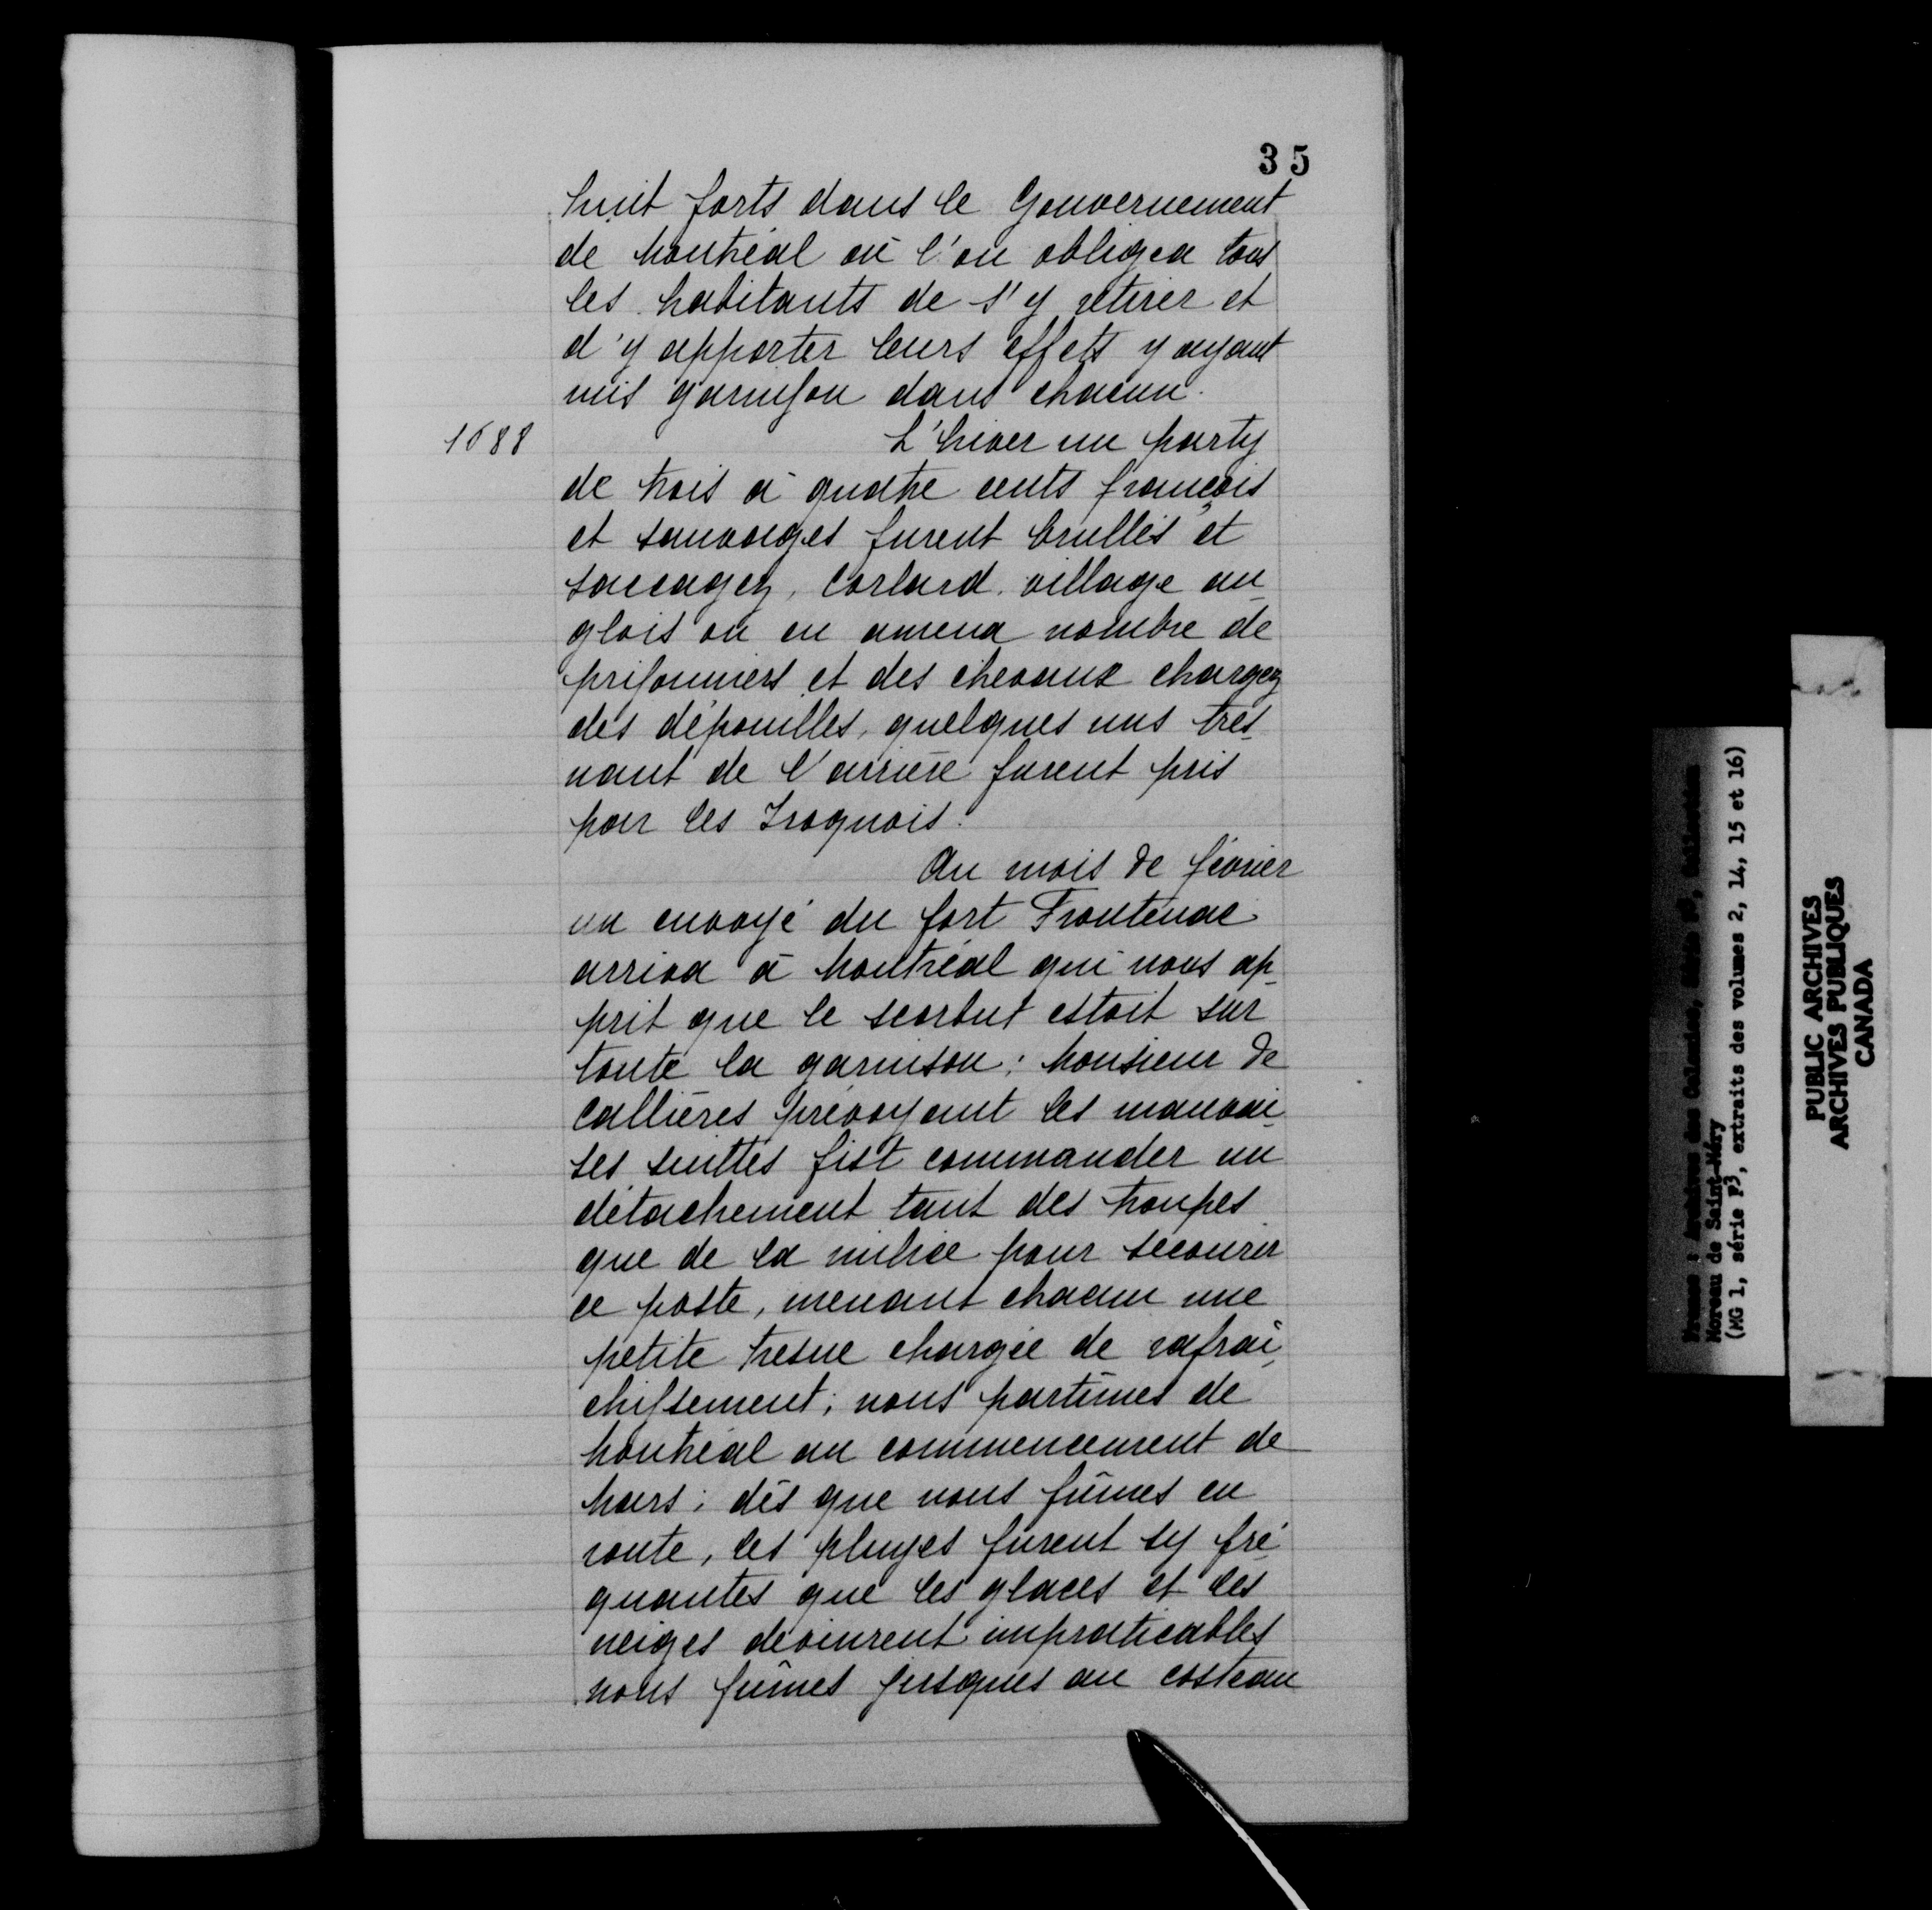 35
huit forts dans le Gouvernement
de Montréal où l'on obligea tous
les habitants de s'y retirer et
d'y apporter leurs effets y ayant
mis garnison dans chacun.
1688
L'hiver un party
de trois à quatre cents françois
et sauvages furent brullés et
saccagez, Corlard village an-
glois on en amena nombre de
prisonniers et des chevaux chargez
des dépouilles, quelques uns tres-
nant de l'arrière furent pris
par les Iroquois.
Au mois de février
un envoyé du fort Frontenac
arriva à Montréal qui nous ap-
prit que le scorbut estoit sur
toute la garnison; Monsieur de
Callières prévoyant les mauvai-
ses suittes fist commander un
détachement tant des troupes
que de la milice pour secourir
ce poste, menant chacun une
petite tresne chargée de rafrai-
chissement; nous partimes de
Montréal au commencement de
Mars; dès que nous fûmes en
route, les pluyes furent sy fré-
quantes que les glaces et les
neiges devinrent impraticables
nous fûmes jusques au costeau
Moreau de Saint-Méry
(MG 1, série F3, extraits des volumes 2, 14, 15 et 16)
PUBLIC ARCHIVES
ARCHIVES PUBLIQUES
CANADA